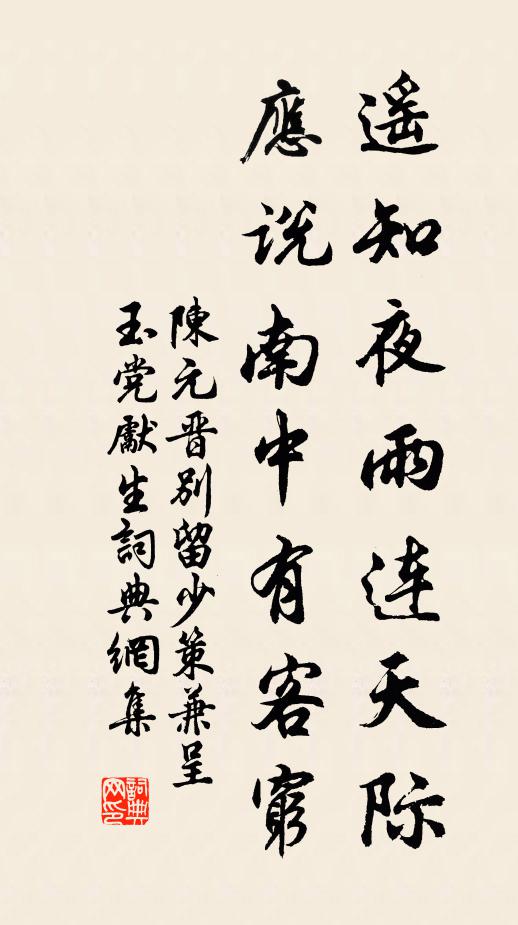 遥知夜雨连天际
應说南中有客窮
陳元晋别留少策兼呈
玉党獻生詞典網集
詞典网印